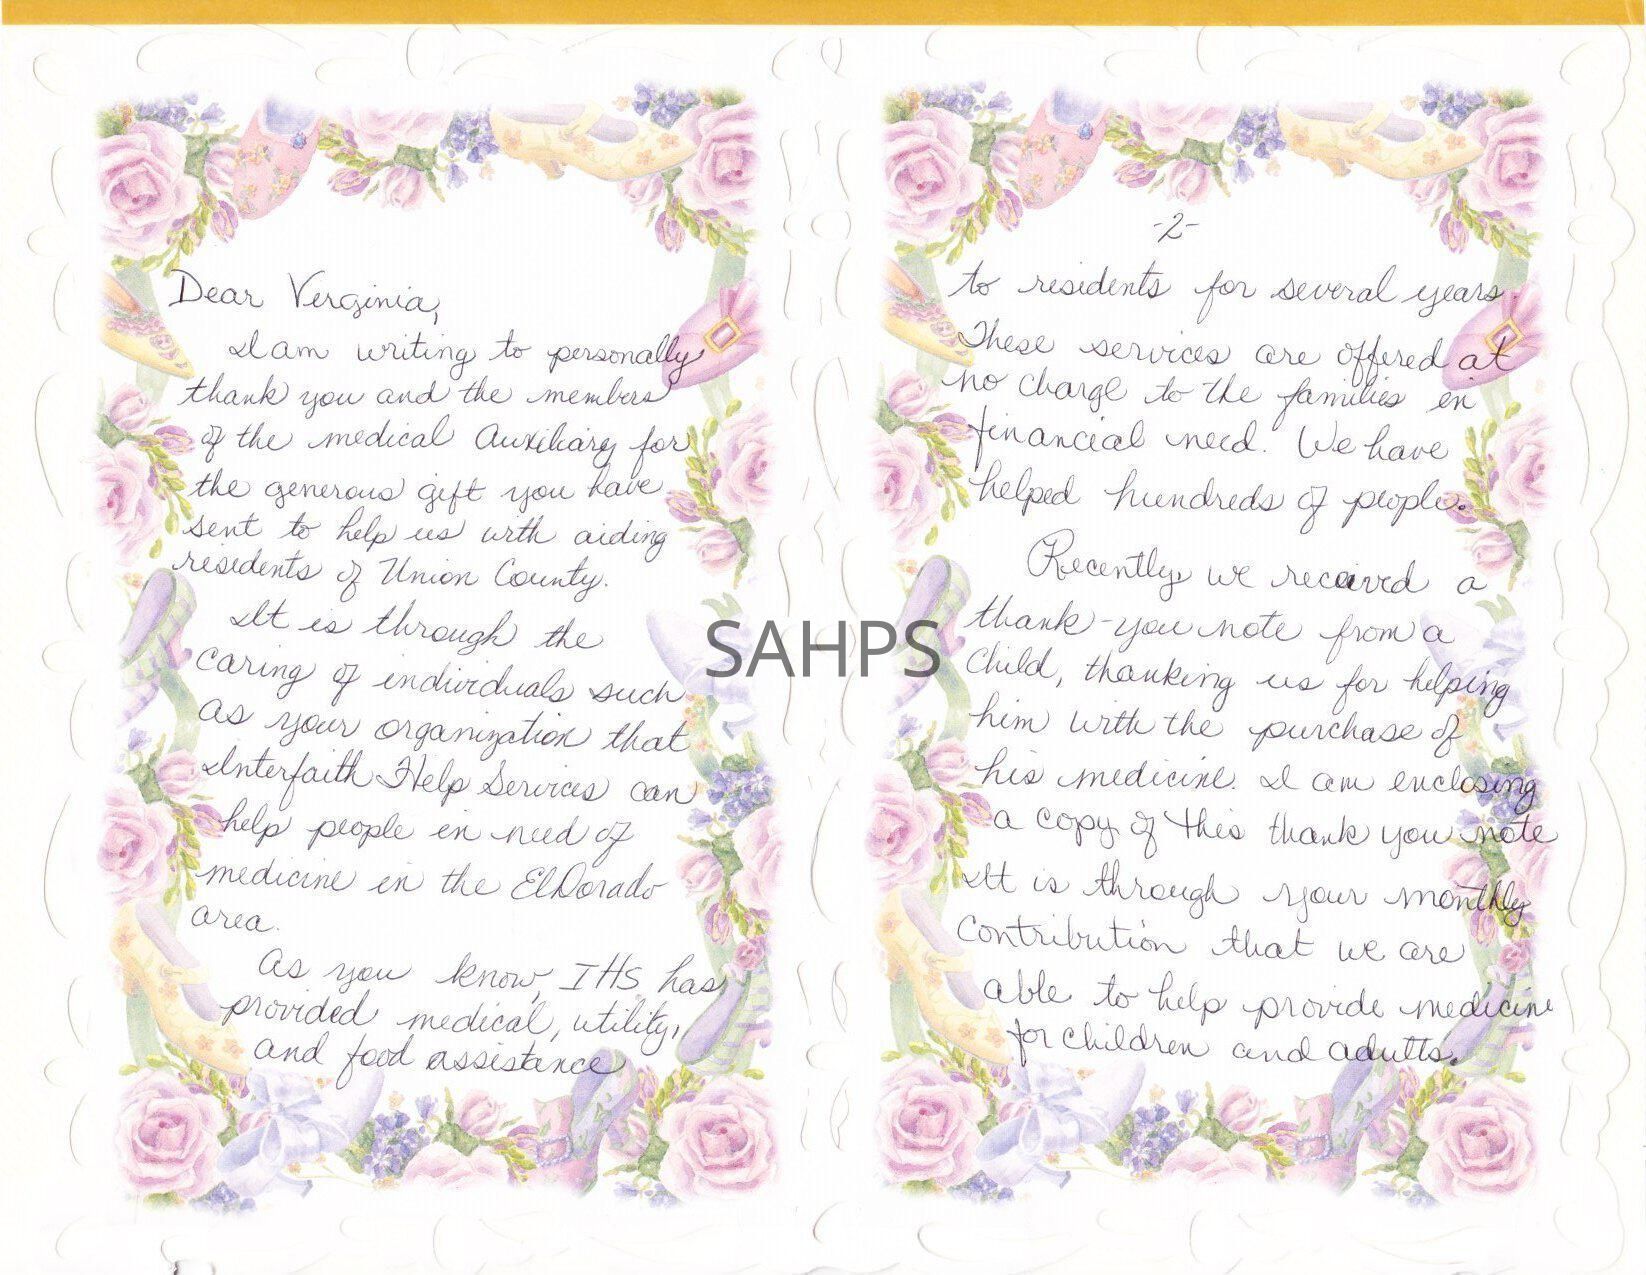 Dear Verginia,
I am writing to personally
thank you and the members
of the medical Auxiliary for
the generous gift you have
sent to help us with aiding
residents of Union County.
It is through the
caring of individuals such
as your organization that
Interfaith Help Services can
help people in need of
medicine in the ElDorado
area.
As you know, IHS has
provided medical, utility,
and food assistance
-2-
to residents for several years.
These services are offered at
no charge to the families in
financial need. We have
helped hundreds of people.
Recently, we received a
thank-you note from a
child, thanking us for helping
him with the purchase of
his medicine. I am enclosing
a copy of this thank you note
It is through your monthly
contribution that we are
able to help provide medicine
for children and adults.
SAHPS